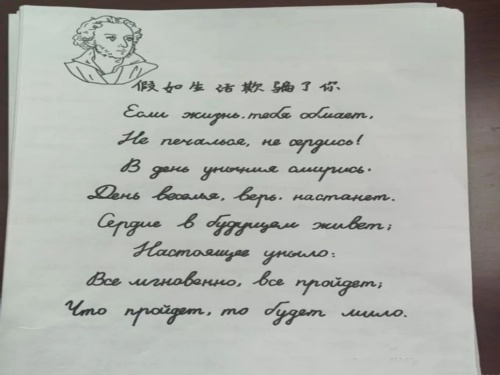 假如生活欺骗了你
Если жизнь, тебя обмает,
Не печалься, не сердись!
В день уныния смирись.
День веселья, верь. настанет.
Сердие в будущем живет;
Настоящее уныло:
Все мгновенно, все пройдет;
Что пройдет, то будет мило.